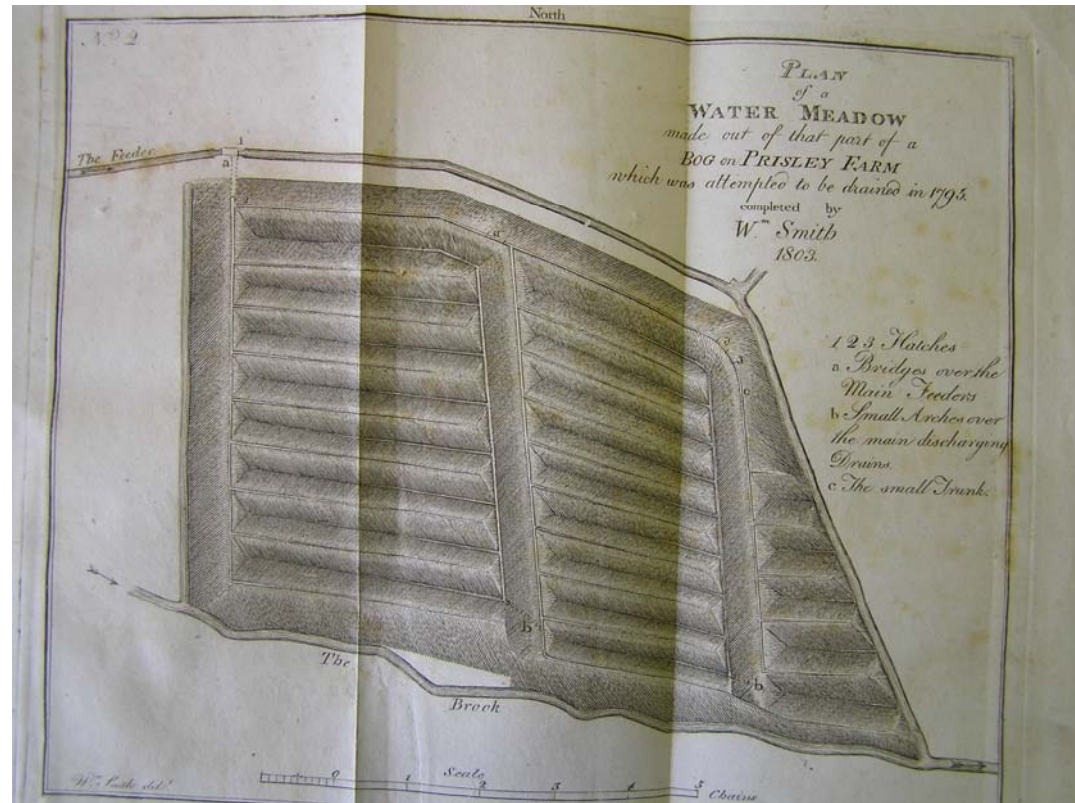 North
No. 2
PLAN
of a
WATER MEADOW
made out of that part of a
BOG on PRISLEY FARM
which was attempted to be drained in 1795.
completed by
Wm. Smith
1803.
The Feeder
1
a
a
3
c
1 2 3 Hatches
a Bridges over the
Main Feeders
b Small Arches over
the main discharging
Drains.
c The small Trunk.
b
b
The
Brook
Scale
0 1 2 3 4 5
Chains
Wm. Smith delt.